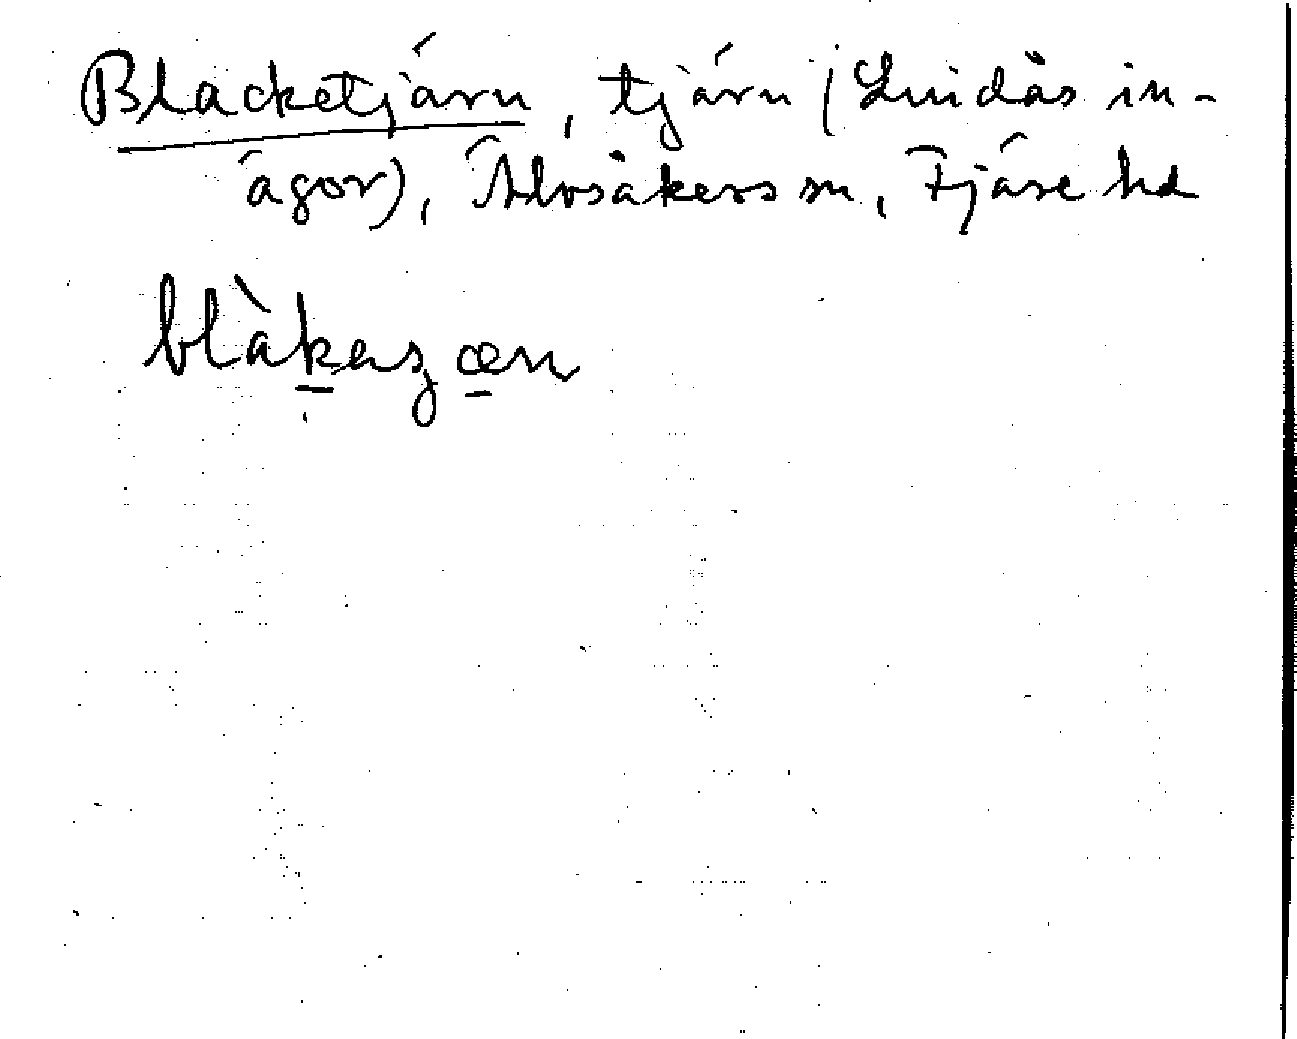 Blacketjärn, tjärn (Lindås in-
ägor), Älvsåkers sn, Fjäre hd
blàkaʒæn